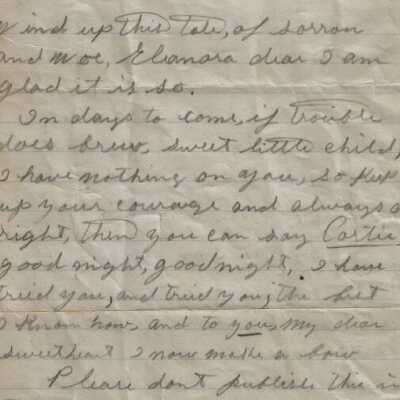 Wind up this tale, of sorrow
and woe, Eleanora dear I am
glad it is so.
In days to come, if trouble
does brew, sweet little child,
I have nothing on you, so keep
up your courage and always
right, then you can say
good night, good night, I have
tried you, and tried you, the best
I know how, and to you, my dear
sweetheart I now make a bow
Please dont publish this in